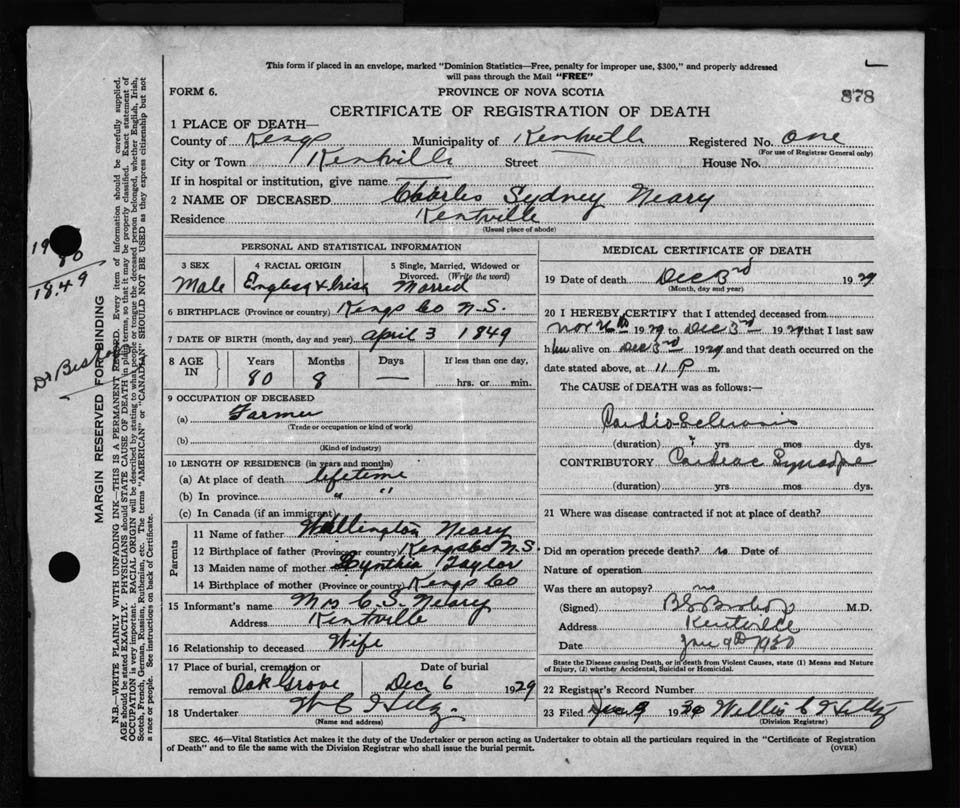 This form if placed in an envelope, marked "Dominion Statistics—Free, penalty for improper use, $300," and properly addressed
will pass through the Mail "FREE"
FORM 6.
PROVINCE OF NOVA SCOTIA
878
CERTIFICATE OF REGISTRATION OF DEATH
1 PLACE OF DEATH—
County of Kings Municipality of Kentville Registered No. One
(For use of Registrar General only)
City or Town Kentville Street — House No.
If in hospital or institution, give name
2 NAME OF DECEASED Charles Sydney Neary
Residence Kentville
(Usual place of abode)
PERSONAL AND STATISTICAL INFORMATION
3 SEX
Male
4 RACIAL ORIGIN
English & Irish
5 Single, Married, Widowed or
Divorced. (Write the word)
Married
6 BIRTHPLACE (Province or country) Kings Co N.S.
7 DATE OF BIRTH (month, day and year) April 3 1849
8 AGE
IN
Years
80
Months
8
Days
—
If less than one day,
hrs. or min.
9 OCCUPATION OF DECEASED
(a) Farmer
(Trade or occupation or kind of work)
(b)
(Kind of industry)
10 LENGTH OF RESIDENCE (in years and months)
(a) At place of death lifetime
(b) In province " "
(c) In Canada (if an immigrant)
Parents
11 Name of father Wellington Neary
12 Birthplace of father (Province or country) Kings Co N.S.
13 Maiden name of mother Cynthia Taylor
14 Birthplace of mother (Province or country) Kings Co
15 Informant's name Mrs C. S. Neary
Address Kentville
16 Relationship to deceased Wife
17 Place of burial, cremation or
removal Oak Grove
Date of burial
Dec 6 1929
18 Undertaker W C Hiltz
(Name and address)
MEDICAL CERTIFICATE OF DEATH
19 Date of death Dec 3rd 1929
(Month, day and year)
20 I HEREBY CERTIFY that I attended deceased from
Nov 26th 1929 to Dec 3rd 1929 that I last saw
him alive on Dec 3rd 1929 and that death occurred on the
date stated above, at 11 P m.
The CAUSE OF DEATH was as follows:
Cardio-Sclerosis
(duration) ? yrs mos dys.
CONTRIBUTORY Cardiac Syncope
(duration) yrs mos dys.
21 Where was disease contracted if not at place of death?
Did an operation precede death? no Date of
Nature of operation
Was there an autopsy? no
(Signed) Bishop M.D.
Address Kentville
Date Jan 9th 1930
State the Disease causing Death, or in death from Violent Causes, state (1) Means and Nature
of Injury, (2) whether Accidental, Suicidal or Homicidal.
22 Registrar's Record Number
23 Filed Jan 9 1930 Willis C Hiltz
(Division Registrar)
SEC. 46—Vital Statistics Act makes it the duty of the Undertaker or person acting as Undertaker to obtain all the particulars required in the "Certificate of Registration
of Death" and to file the same with the Division Registrar who shall issue the burial permit.
(OVER)
80
1849
Dr Bishop
MARGIN RESERVED FOR BINDING
N.B.—WRITE PLAINLY WITH UNFADING INK—THIS IS A PERMANENT RECORD. Every item of information should be carefully supplied.
AGE should be stated EXACTLY. PHYSICIANS should STATE CAUSE OF DEATH in plain terms, so that it may be properly classified. Exact statement of
OCCUPATION is very important. RACIAL ORIGIN will be described by stating to what people or tongue the deceased person belonged, whether English, Irish,
Scotch, French, German, Russian, Ruthenian, etc. The terms "AMERICAN" or "CANADIAN" SHOULD NOT BE USED as they express citizenship but not
a race or people. See instructions on back of Certificate.